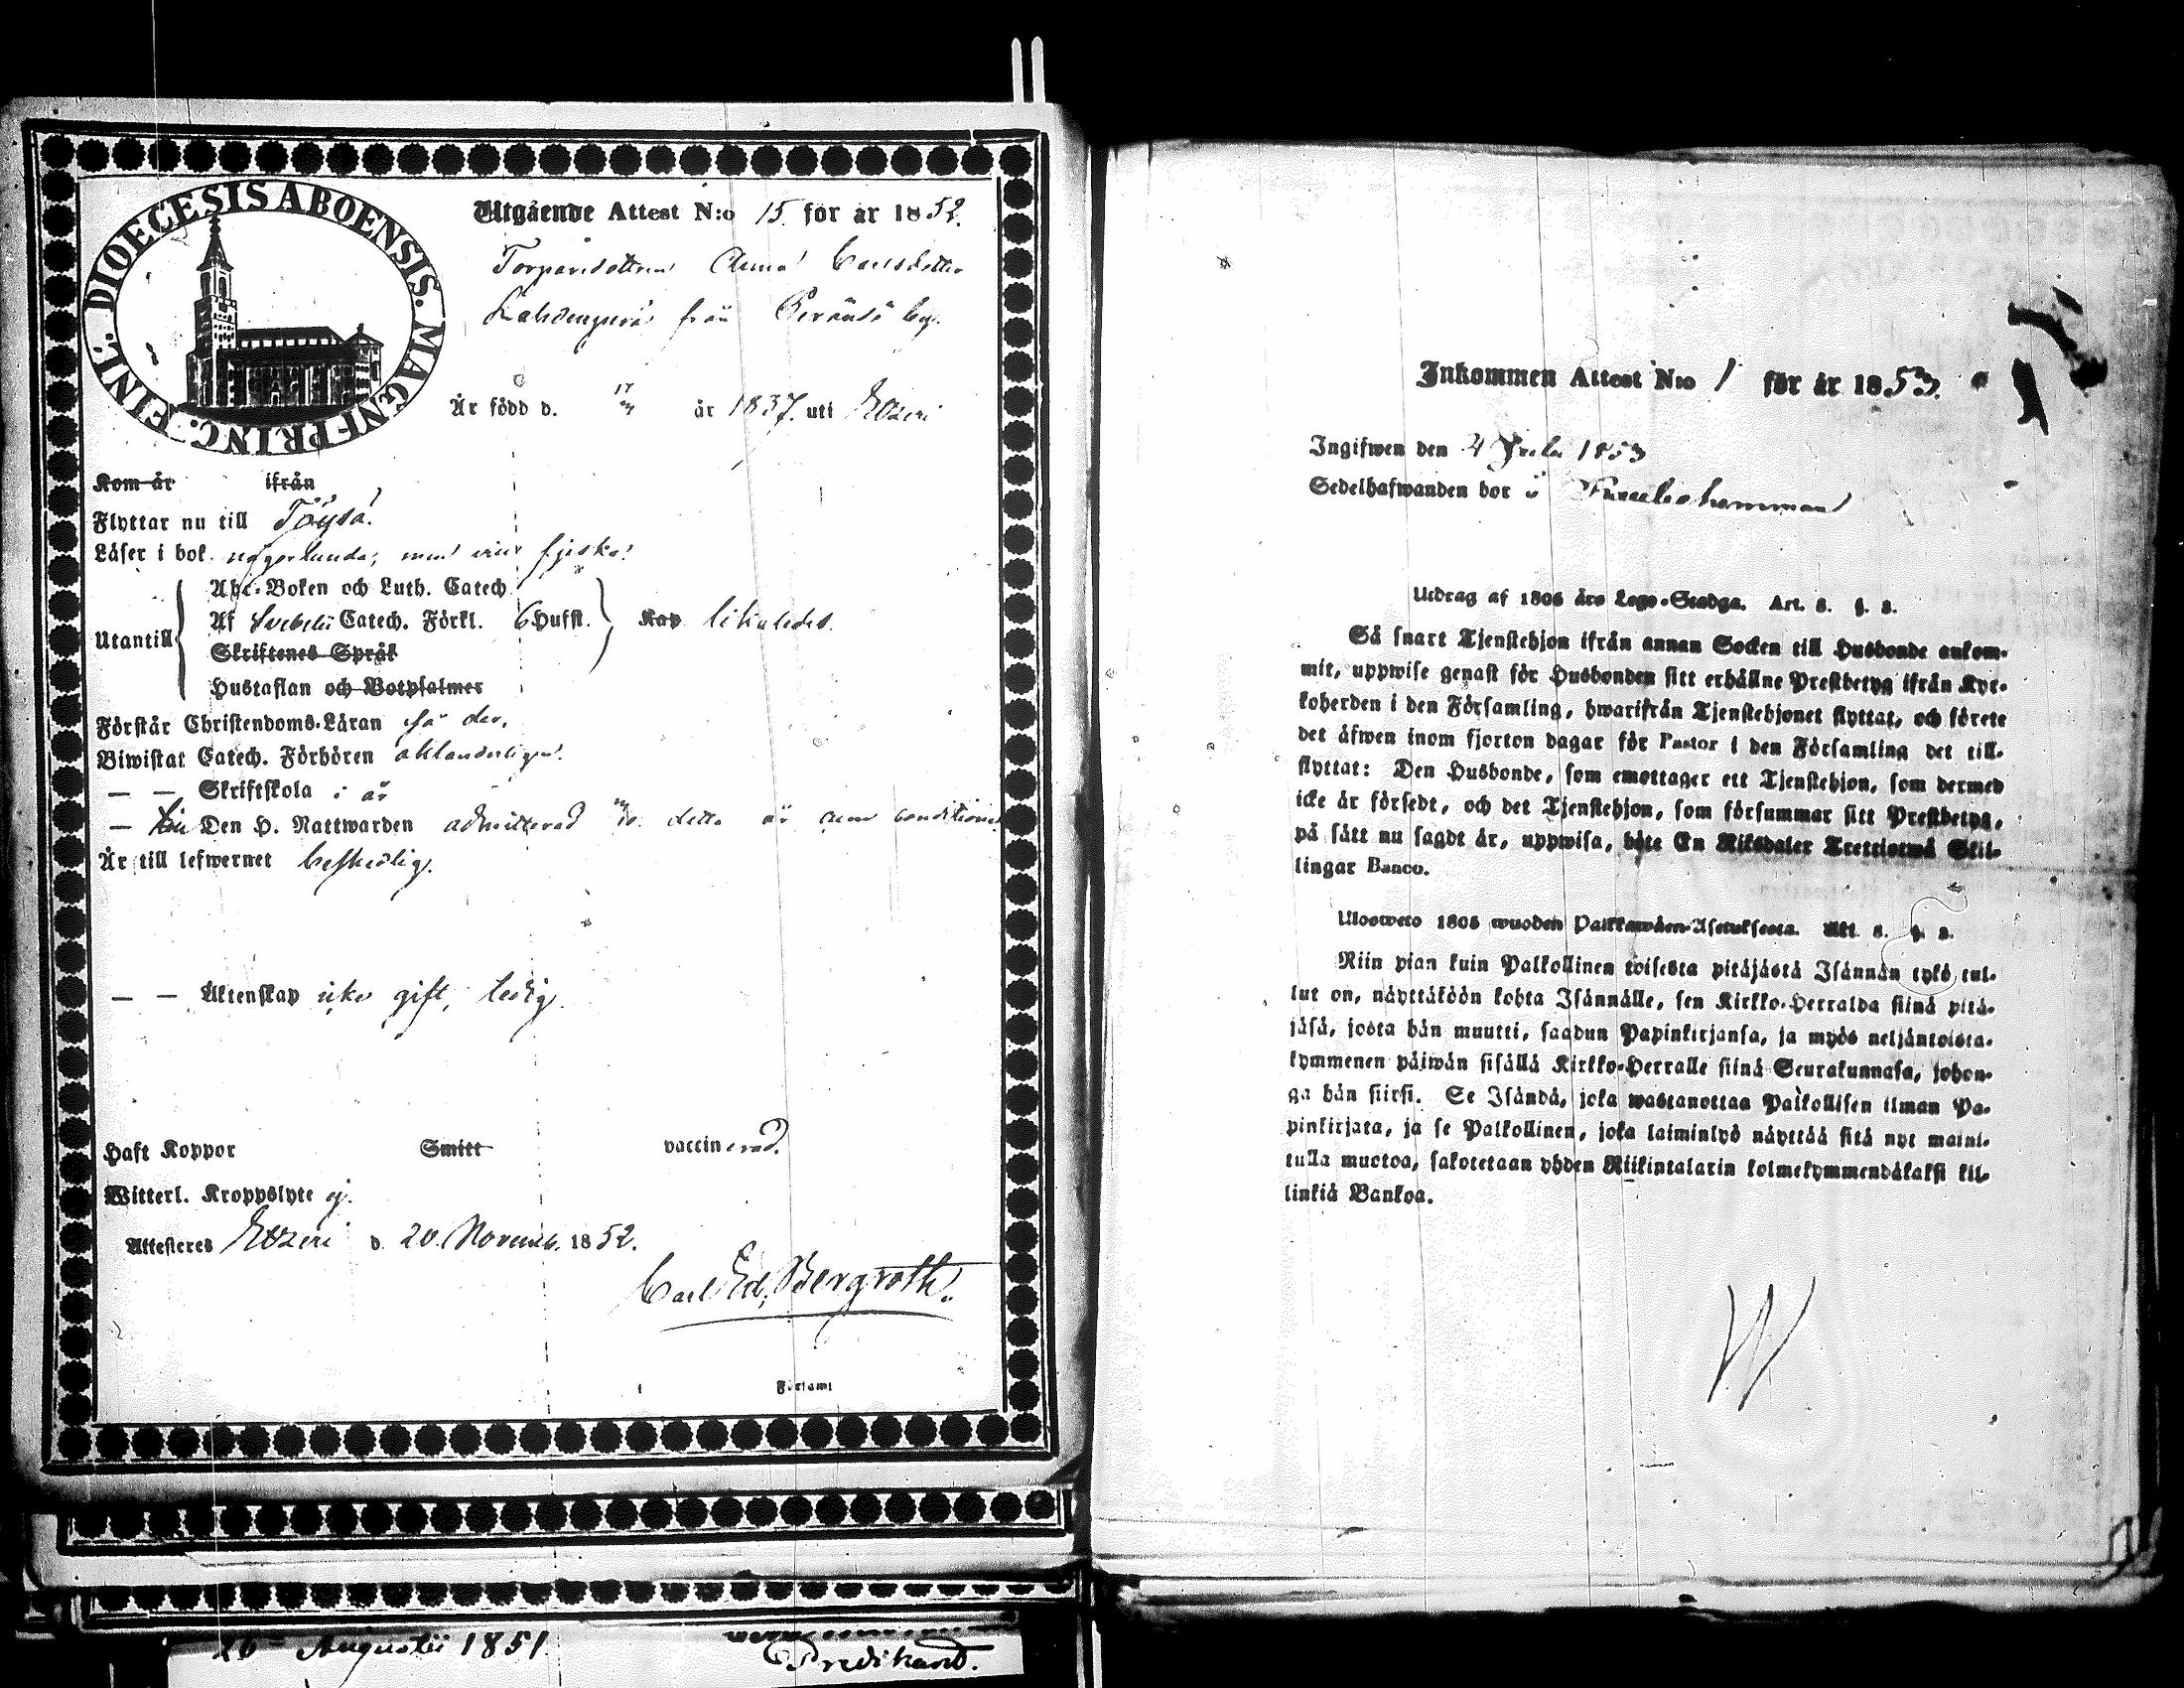 DIOECESIS ABOENSIS. MAGNI PRINC. FINL.
Utgående Attest N:o 15 för år 1852.
Torparedottren Anna Carlsdotter
från by.
Är född d. 17/3 år 1837. uti Etzeri
Kom år ifrån
Flyttar nu till Töysä.
Läser i bok någorlunda; men
Abc-Boken och Luth. Catech
Utantill Af Svebelii Catech. Förkl. 6 Hufst. Kap likaledes.
Skriftenes Språk
Hustaflan och Botpsalmer
Förstår Christendoms-Läran
Biwistat Catech. Förhören oklanderligen.
— — Skriftskola i år
— Den H. Nattwarden admitterad detta år
Är till lefwernet beskedlig.
— — Äktenskap icke gift, ledig.
Haft Koppor Smitt vaccinerad.
Witterl. Kroppslyte ej.
Attesteres Etzeri d. 20. Novemb. 1852.
Carl Ed. Bergroth.
Församl
26 Augusti 1851.
Predikant.
Inkommen Attest N:o 1 för år 1853.
Ingifwen den 4 1853
Sedelhafwanden bor
Utdrag af 1805 års Lego-Stadga. Art. 8. §. 8.
Så snart Tjenstehjon ifrån annan Socken till Husbonde ankom-
mit, uppwise genast för Husbonden sitt erhållne Prestbetyg ifrån Kyr-
koherden i den Församling, hwarifrån Tjenstehjonet flyttat, och förete
det äfwen inom fjorton dagar för Pastor i den Församling det till-
flyttat: Den Husbonde, som emottager ett Tjenstehjon, som dermed
icke är försedt, och det Tjenstehjon, som försummar sitt Prestbetyg,
på sätt nu sagdt är, uppwisa, böte En Riksdaler Trettiotwå Skil-
lingar Banco.
Ulosweto 1805 wuoden Palkkawäen-Asetuksesta. Art. 8. §. 8.
Niin pian kuin Palkollinen toisesta pitäjästä Isännän tykö tul-
lut on, näyttäköön kohta Isännälle, sen Kirkko-Herralda siinä pitä-
jäsä, josta hän muutti, saadun Papinkirjansa, ja myös neljäntoista-
kymmenen päiwän sisällä Kirkko-Herralle siinä Seurakunnasa, johon-
ga hän siirsi. Se Isändä, joka wastanottaa Palkollisen ilman Pa-
pinkirjata, ja se Palkollinen, joka laiminlyö näyttää sitä nyt maini-
tulla muotoa, sakotetaan yhden Riikintalarin kolmekymmendäkaksi kil-
linkiä Bankoa.